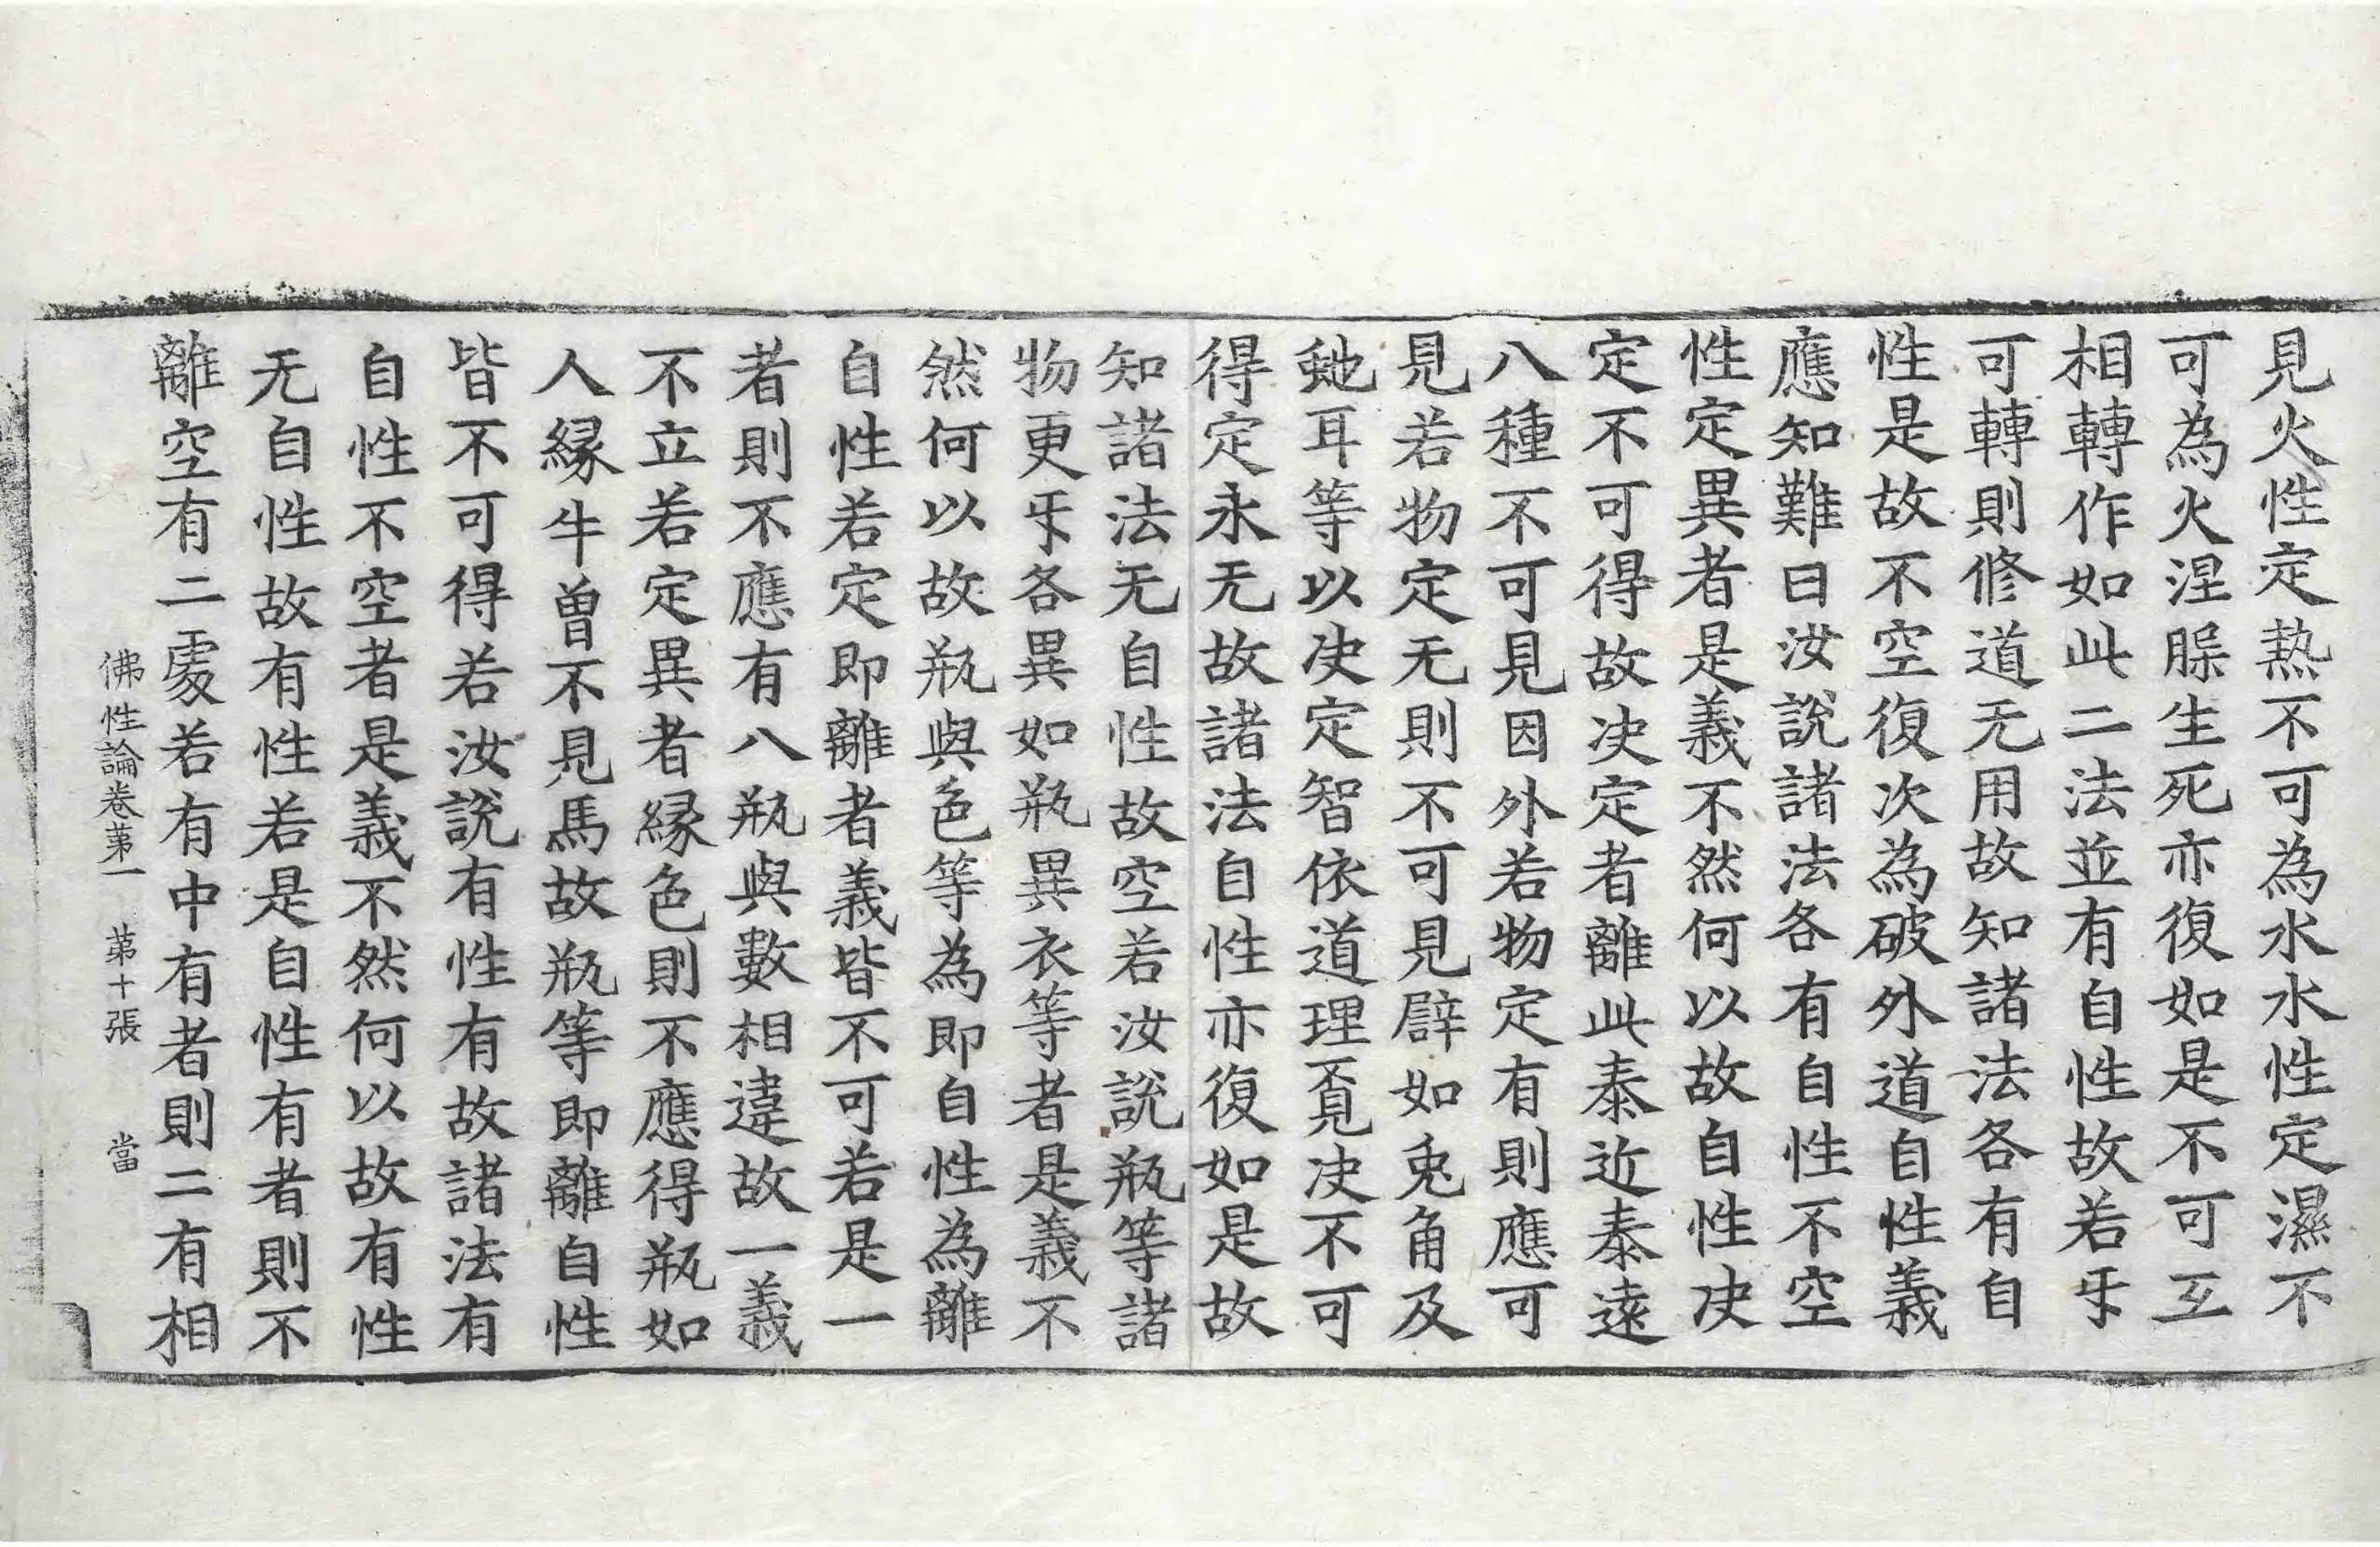 見火性定热不可為水水性定濕不
可為火涅𦝫生死亦復如是不可互
相轉作如此二法並有自性故若㸦
可轉則修道无用故知諸法各有自
性是故不空復次為破外道自性義
應知難曰汝說諸法各有自性不空
性定異者是義不然何以故自性决
定不可得故决定者離此泰近泰遠
八種不可見因外若物定有則應可
見若物定无則不可見辟如兎角及
虵耳等以决定智依道理覔决不可
得定永无故諸法自性亦復如是故
知諸法无自性故空若汝說瓶等諸
物更㸦各異如瓶異衣等者是義不
然何以故瓶與色等為即自性為離
自性若定即離者義皆不可若是一
者則不應有八瓶與數相違故一義
不立若定異者緣色則不應得瓶如
人緣牛曾不見馬故瓶等即離自性
皆不可得若汝說有性有故諸法有
自性不空者是義不然何以故有性
无自性故有性若是自性有者則不
離空有二處若有中有者則二有相
佛性論卷苐一　苐十張　當